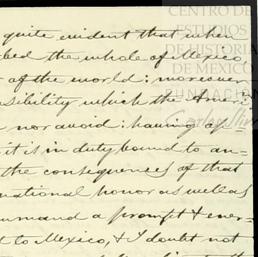 quite evident that when
bed the whole of Mexico
of the world; moreover
sibility which the Ameri-
nor avoid: having as
it is in duty bound to an-
the consequences of that
national honor as well as
mmand a prompt & ener-
to Mexico, & I doubt not
CENTRO DE
ESTUDIOS
DE HISTORIA
DE MEXICO
FUNDACIÓN
Carlos Slim